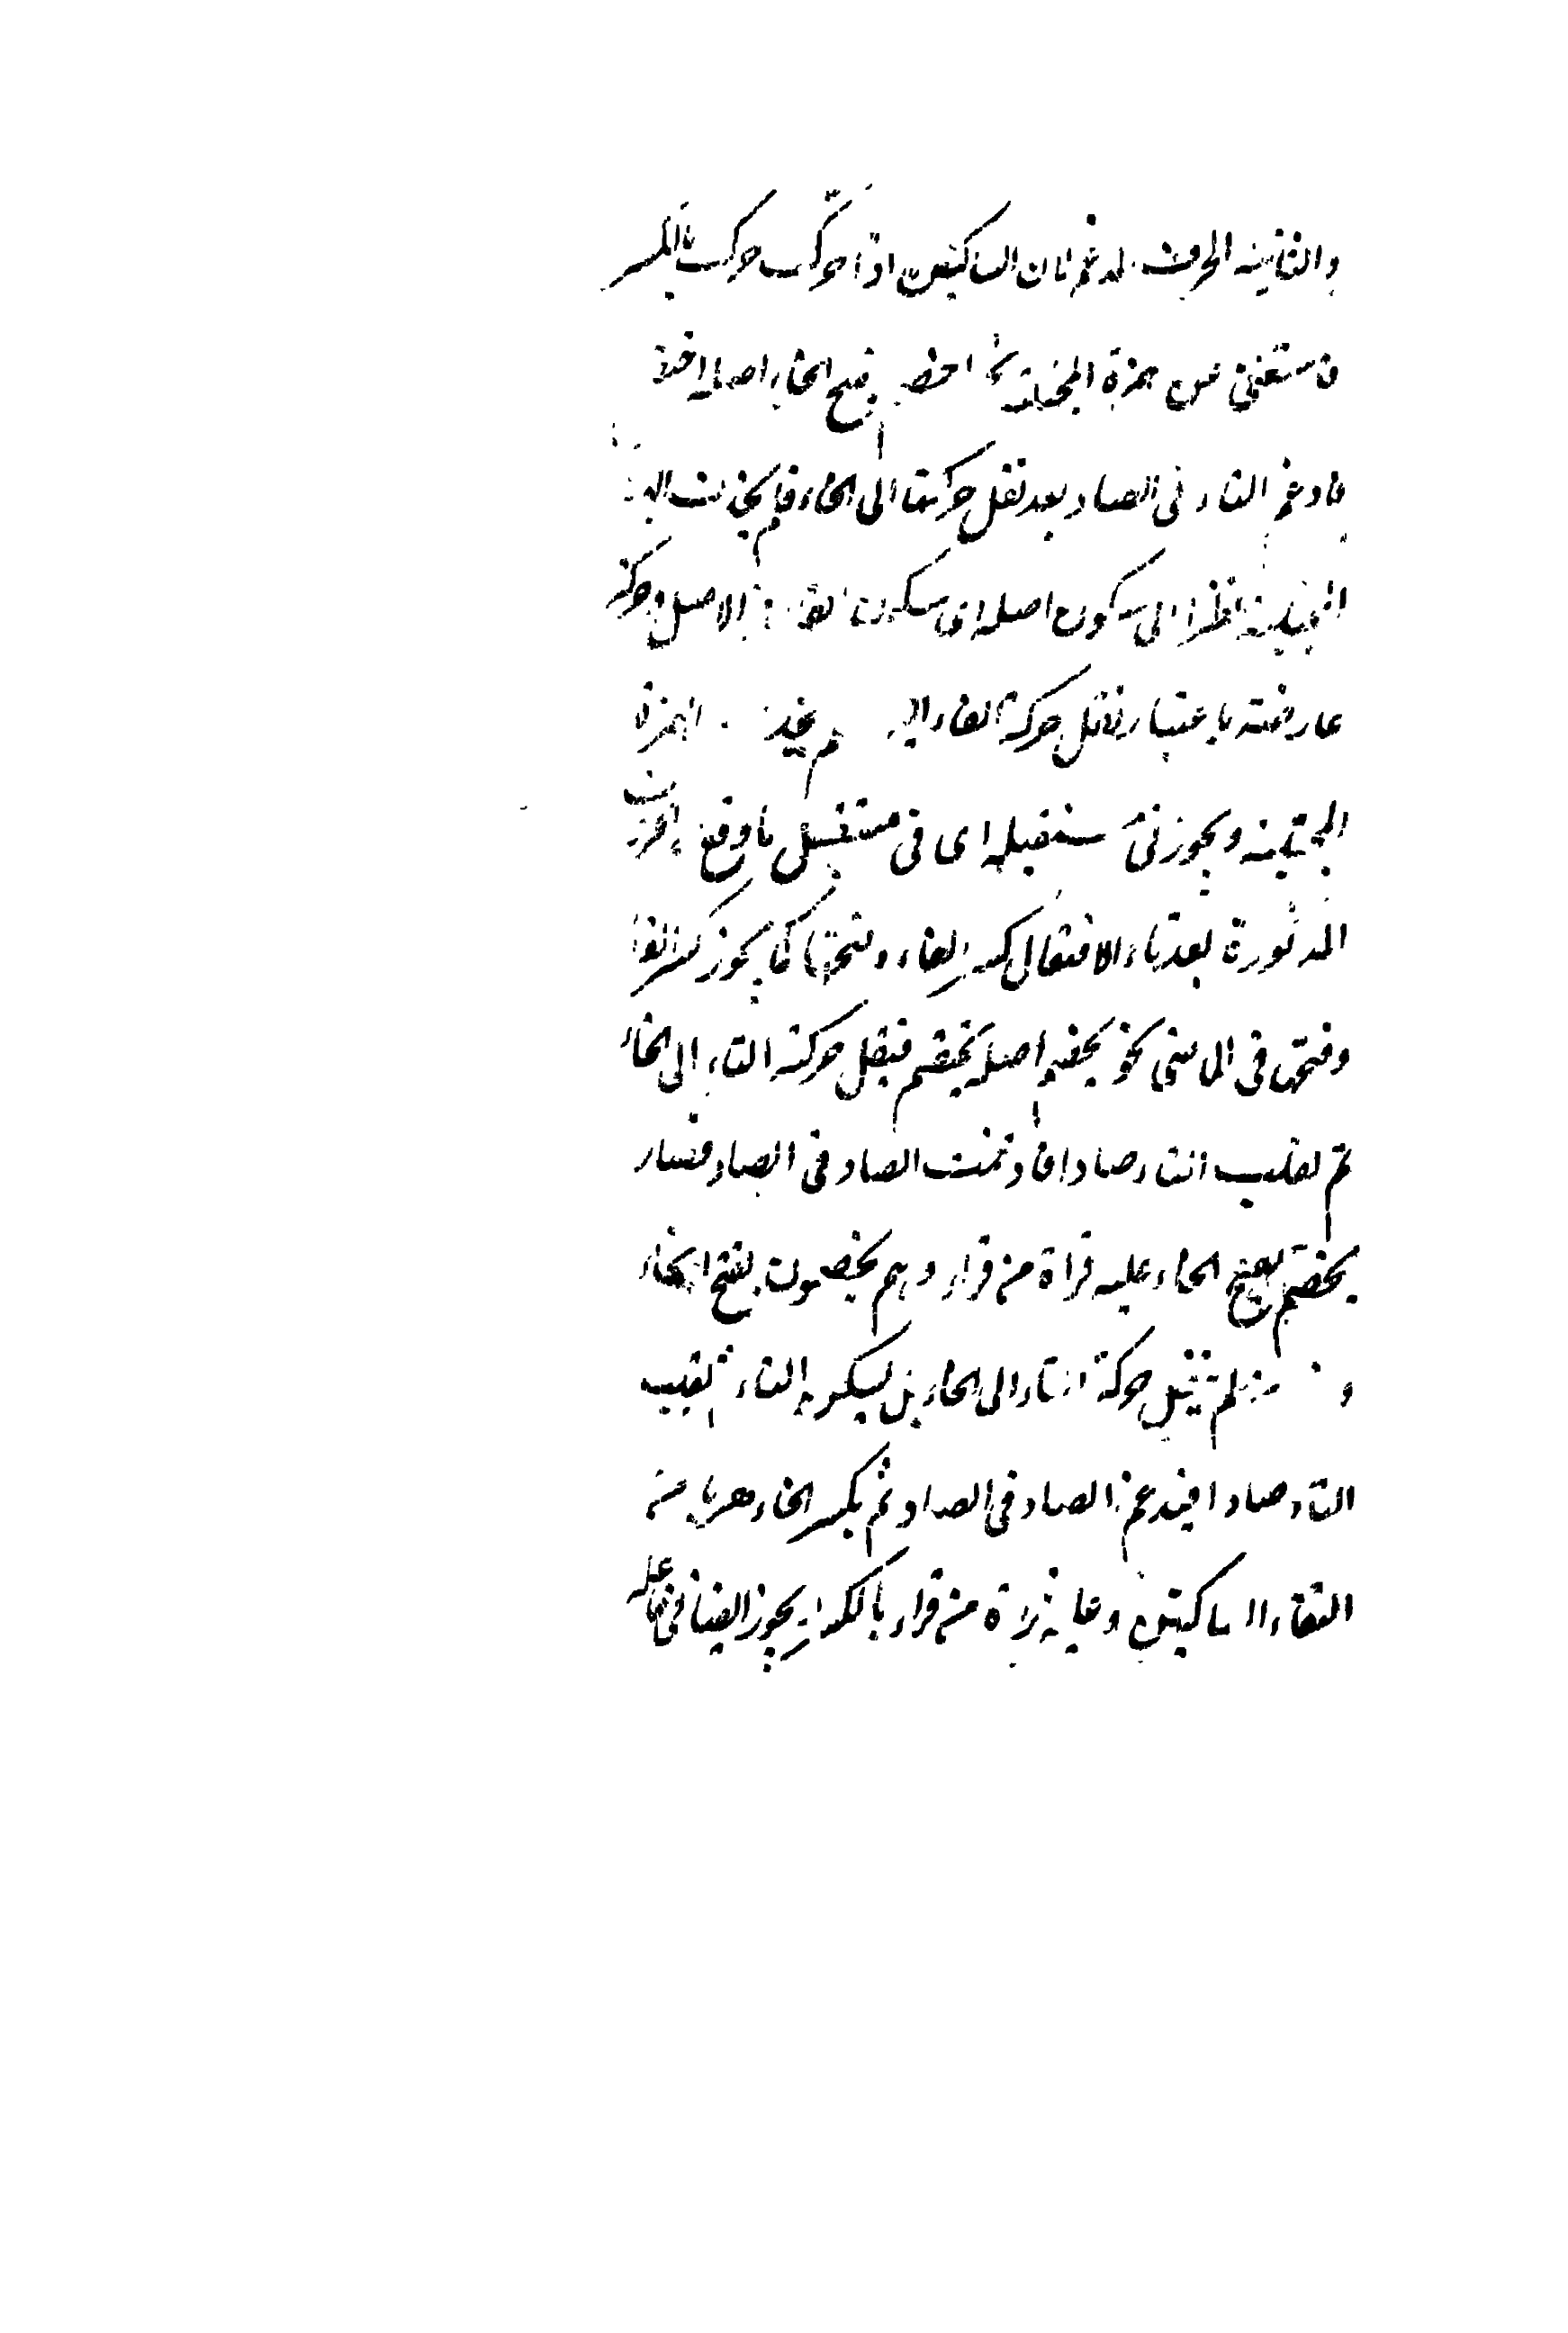 والثانية الحرف المدغم لان الساكنين اذا حركت حركت بالكسر
فاستغنى عن همزة المجتلبة نحو اخصم بفتح الخاء اصله اختصم
فادغم التاء فى الصاد بعد نقل حركتها الى الخاء فلم يحذف
المجتلبة نظرا الى سكون اصله اى سكون الخاء فى الاصل وحركة
عارضة باعتبار نقل حركة التاء اليه لم يحذف الهمزة
المجتلبة ويجوز فى مستقبله اى فى مستقبل ما وقع الحرف
المذكورة بعد تاء الافتعال كسر الفاء وفتحها كما يجوز كسر الفاء
وفتحها فى الماضى نحو يخصم اصله يختصم فنقل حركة التاء الى الخاء
ثم تقلب التاء صادا فادغمت الصاد فى الصاد فصار
يخصم بفتح الخاء وعليه قراة من قراء وهم يخصمون بفتح الخاء
و لم ينقل حركة التاء الى الخاء بل ليسكن التاء ثم تقلب
التاء صادا فيدغم الصاد فى الصاد ثم بكسر الخاء هربا من
التقاء الساكنين وعليه قراة من قراء بالكسر ويجوز ايضا فى فاعله